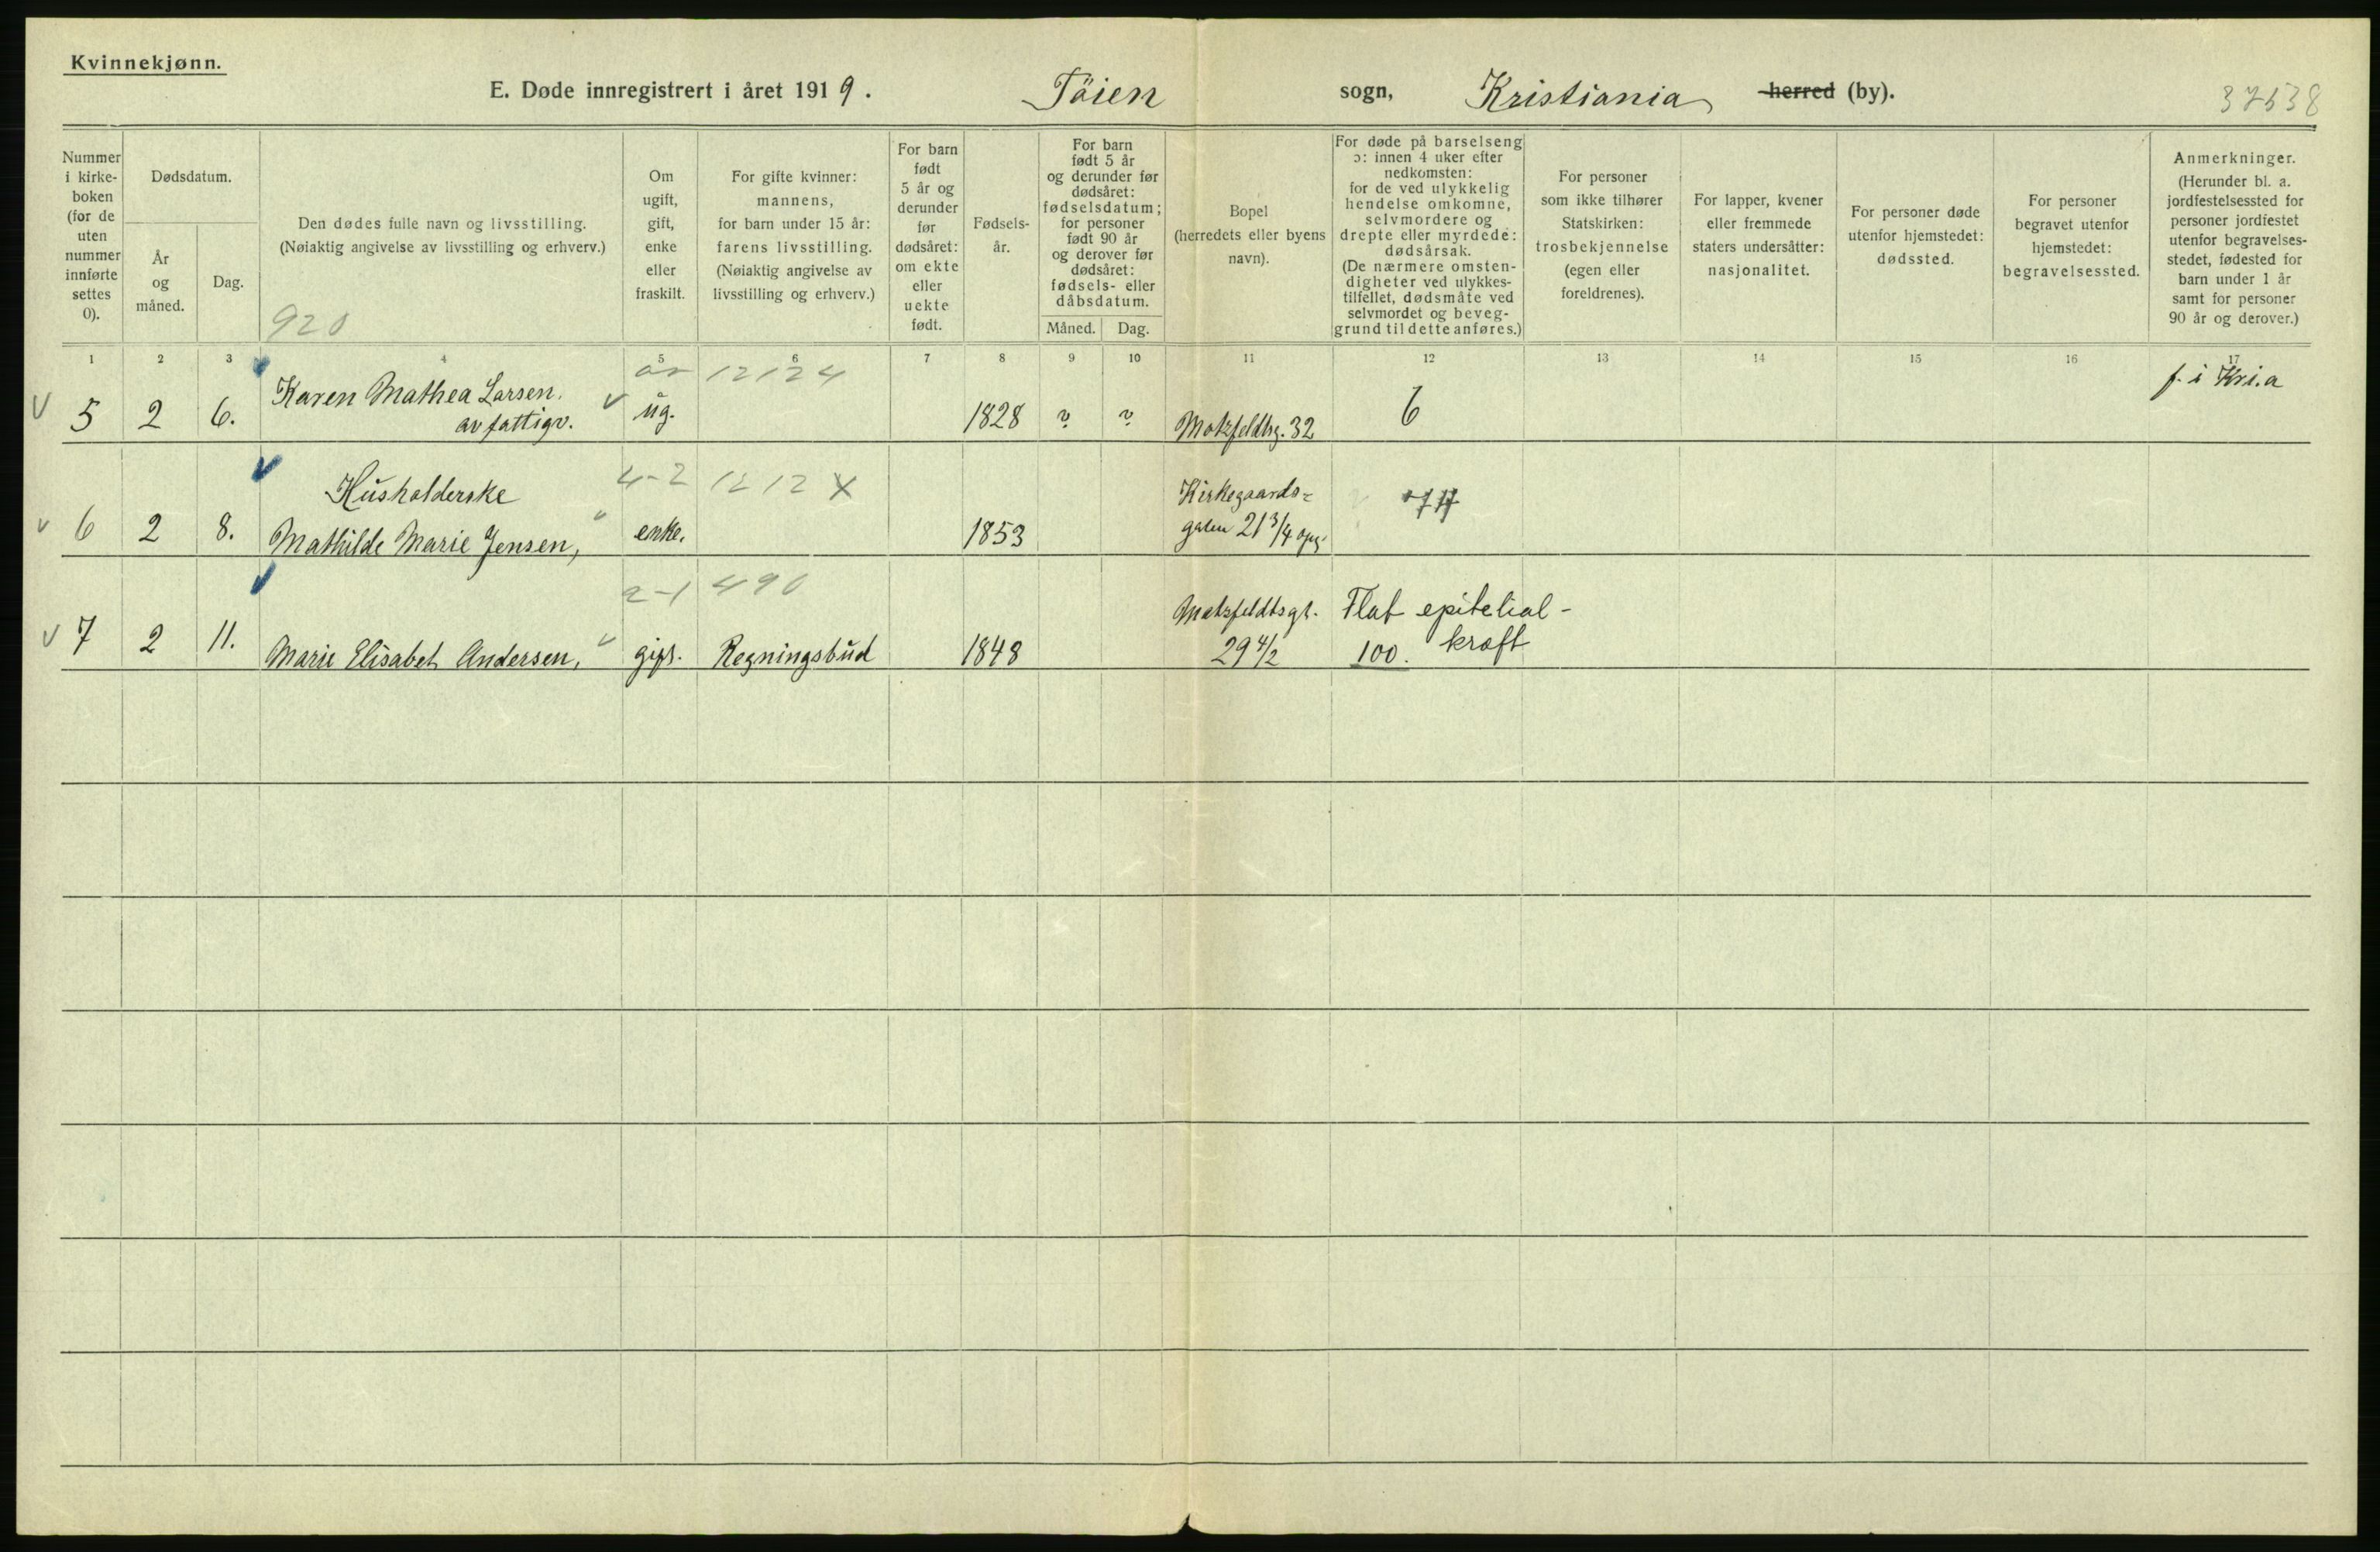 Kvinnekjønn.
E. Døde innregistrert i året 1919. Töien sogn, Kristiania herred (by).
Nummer i kirke-boken (for de uten nummer innførte settes 0).
Dødsdatum.
År og måned.
Dag.
Den dødes fulle navn og livsstilling.
(Nøiaktig angivelse av livsstilling og erhverv.)
920
Om ugift, gift, enke eller fraskilt.
For gifte kvinner: mannens, for barn under 15 år: farens livsstilling.
(Nøiaktig angivelse av livsstilling og erhverv.)
For barn født 5 år og derunder før dødsåret: om ekte eller uekte født.
Fødsels-år.
For barn født 5 år og derunder før dødsåret: fødselsdatum; for personer født 90 år og derover før dødsåret: fødsels- eller dåbsdatum.
Måned. Dag.
Bopel
(herredets eller byens navn).
For døde på barselseng ɔ: innen 4 uker efter nedkomsten: for de ved ulykkelig hendelse omkomne, selvmordere og drepte eller myrdede: dødsårsak.
(De nærmere omsten-digheter ved ulykkes-tilfellet, dødsmåte ved selvmordet og beveg-grund til dette anføres.)
For personer som ikke tilhører Statskirken: trosbekjennelse (egen eller foreldrenes).
For lapper, kvener eller fremmede staters undersåtter: nasjonalitet.
For personer døde utenfor hjemstedet: dødssted.
For personer begravet utenfor hjemstedet: begravelsessted.
Anmerkninger.
(Herunder bl. a. jordfestelsessted for personer jordfestet utenfor begravelses-stedet, fødested for barn under 1 år samt for personer 90 år og derover.)
1 2 3 4 5 6 7 8 9 10 11 12 13 14 15 16 17
12124
5 2 6. Karen Mathea Larsen. av fattigv. ug. 1828 ? ? Motzfeldtsg. 32 6 f. i Kri.a
4-2 1212 X
6 2 8. Husholderske Mathilde Marie Jensen, enke. 1853 Kirkegaards= gaten 21 3/4 opg.
2-1 490
7 2 11. Marie Elisabet Andersen, gift. Regningsbud 1848 Motzfeldtsgt. 29 4/2 Flat epitelial- kræft 100.